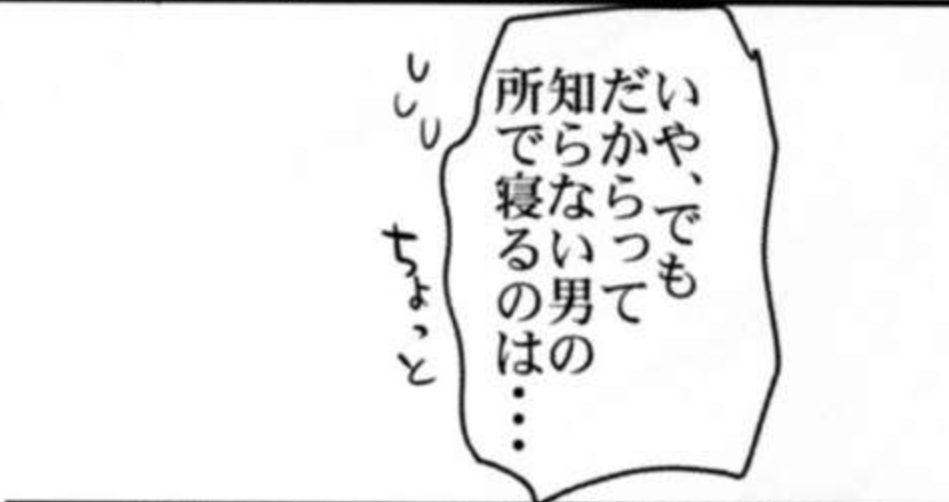 いや、でも
だからって
知らない男の
所で寝るのは…
ちょっと